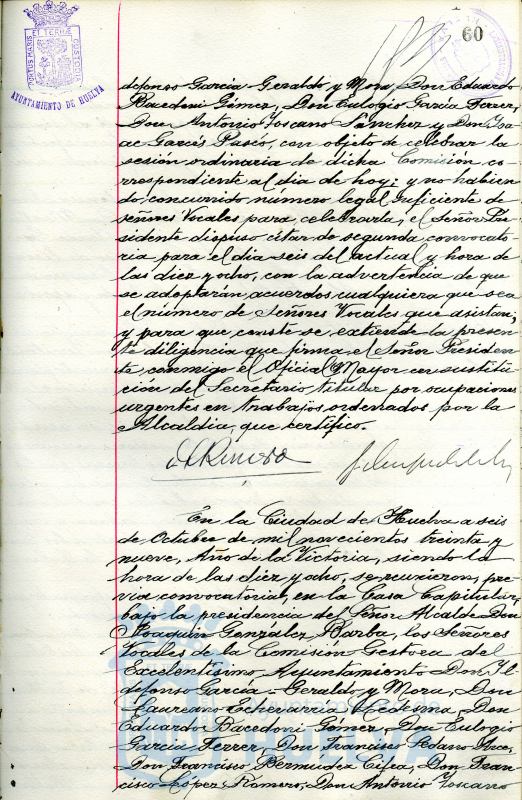 PORTUS MARIS ET TERRE CUSTODIA
AYUNTAMIENTO DE HUELVA
60
defonso García-Geraldo y Mora, Don Eduardo
Bacedoni Gómez, Don Eulogio García Ferrer,
Don Antonio Toscano Sánchez y Don Isa-
ac Garcés Pasco, con objeto de celebrar la
sesión ordinaria de dicha Comisión co-
rrespondiente al día de hoy; y no habien-
do concurrido número legal suficiente de
señores Vocales para celebrarla, el Señor Pre-
sidente dispuso citar de segunda convocato-
ria para el día seis del actual y hora de
las diez y ocho, con la advertencia de que
se adoptarán acuerdos cualquiera que sea
el número de Señores Vocales que asistan;
y para que conste se extiende la presen-
te diligencia que firma el Señor Presiden-
te conmigo el Oficial Mayor en sustitu-
ción del Secretario titular por ocupaciones
urgentes en trabajos ordenados por la
Alcaldía, que certifico.
En la Ciudad de Huelva a seis
de Octubre de mil novecientos treinta y
nueve, Año de la Victoria, siendo la
hora de las diez y ocho, se reunieron, pre-
via convocatoria, en la Casa Capitular,
bajo la presidencia del Señor Alcalde Don
Joaquín González Barba, los Señores
Vocales de la Comisión Gestora del
Excelentísimo Ayuntamiento Don Il-
difonso García-Geraldo y Mora, Don
Laureano Echevarría Ledesma, Don
Eduardo Bacedoni Gómez, Don Eulogio
García Ferrer, Don Francisco Sedano
Don Francisco Bermúdez Cifra, Don Fran-
cisco López Romero, Don Antonio Toscano